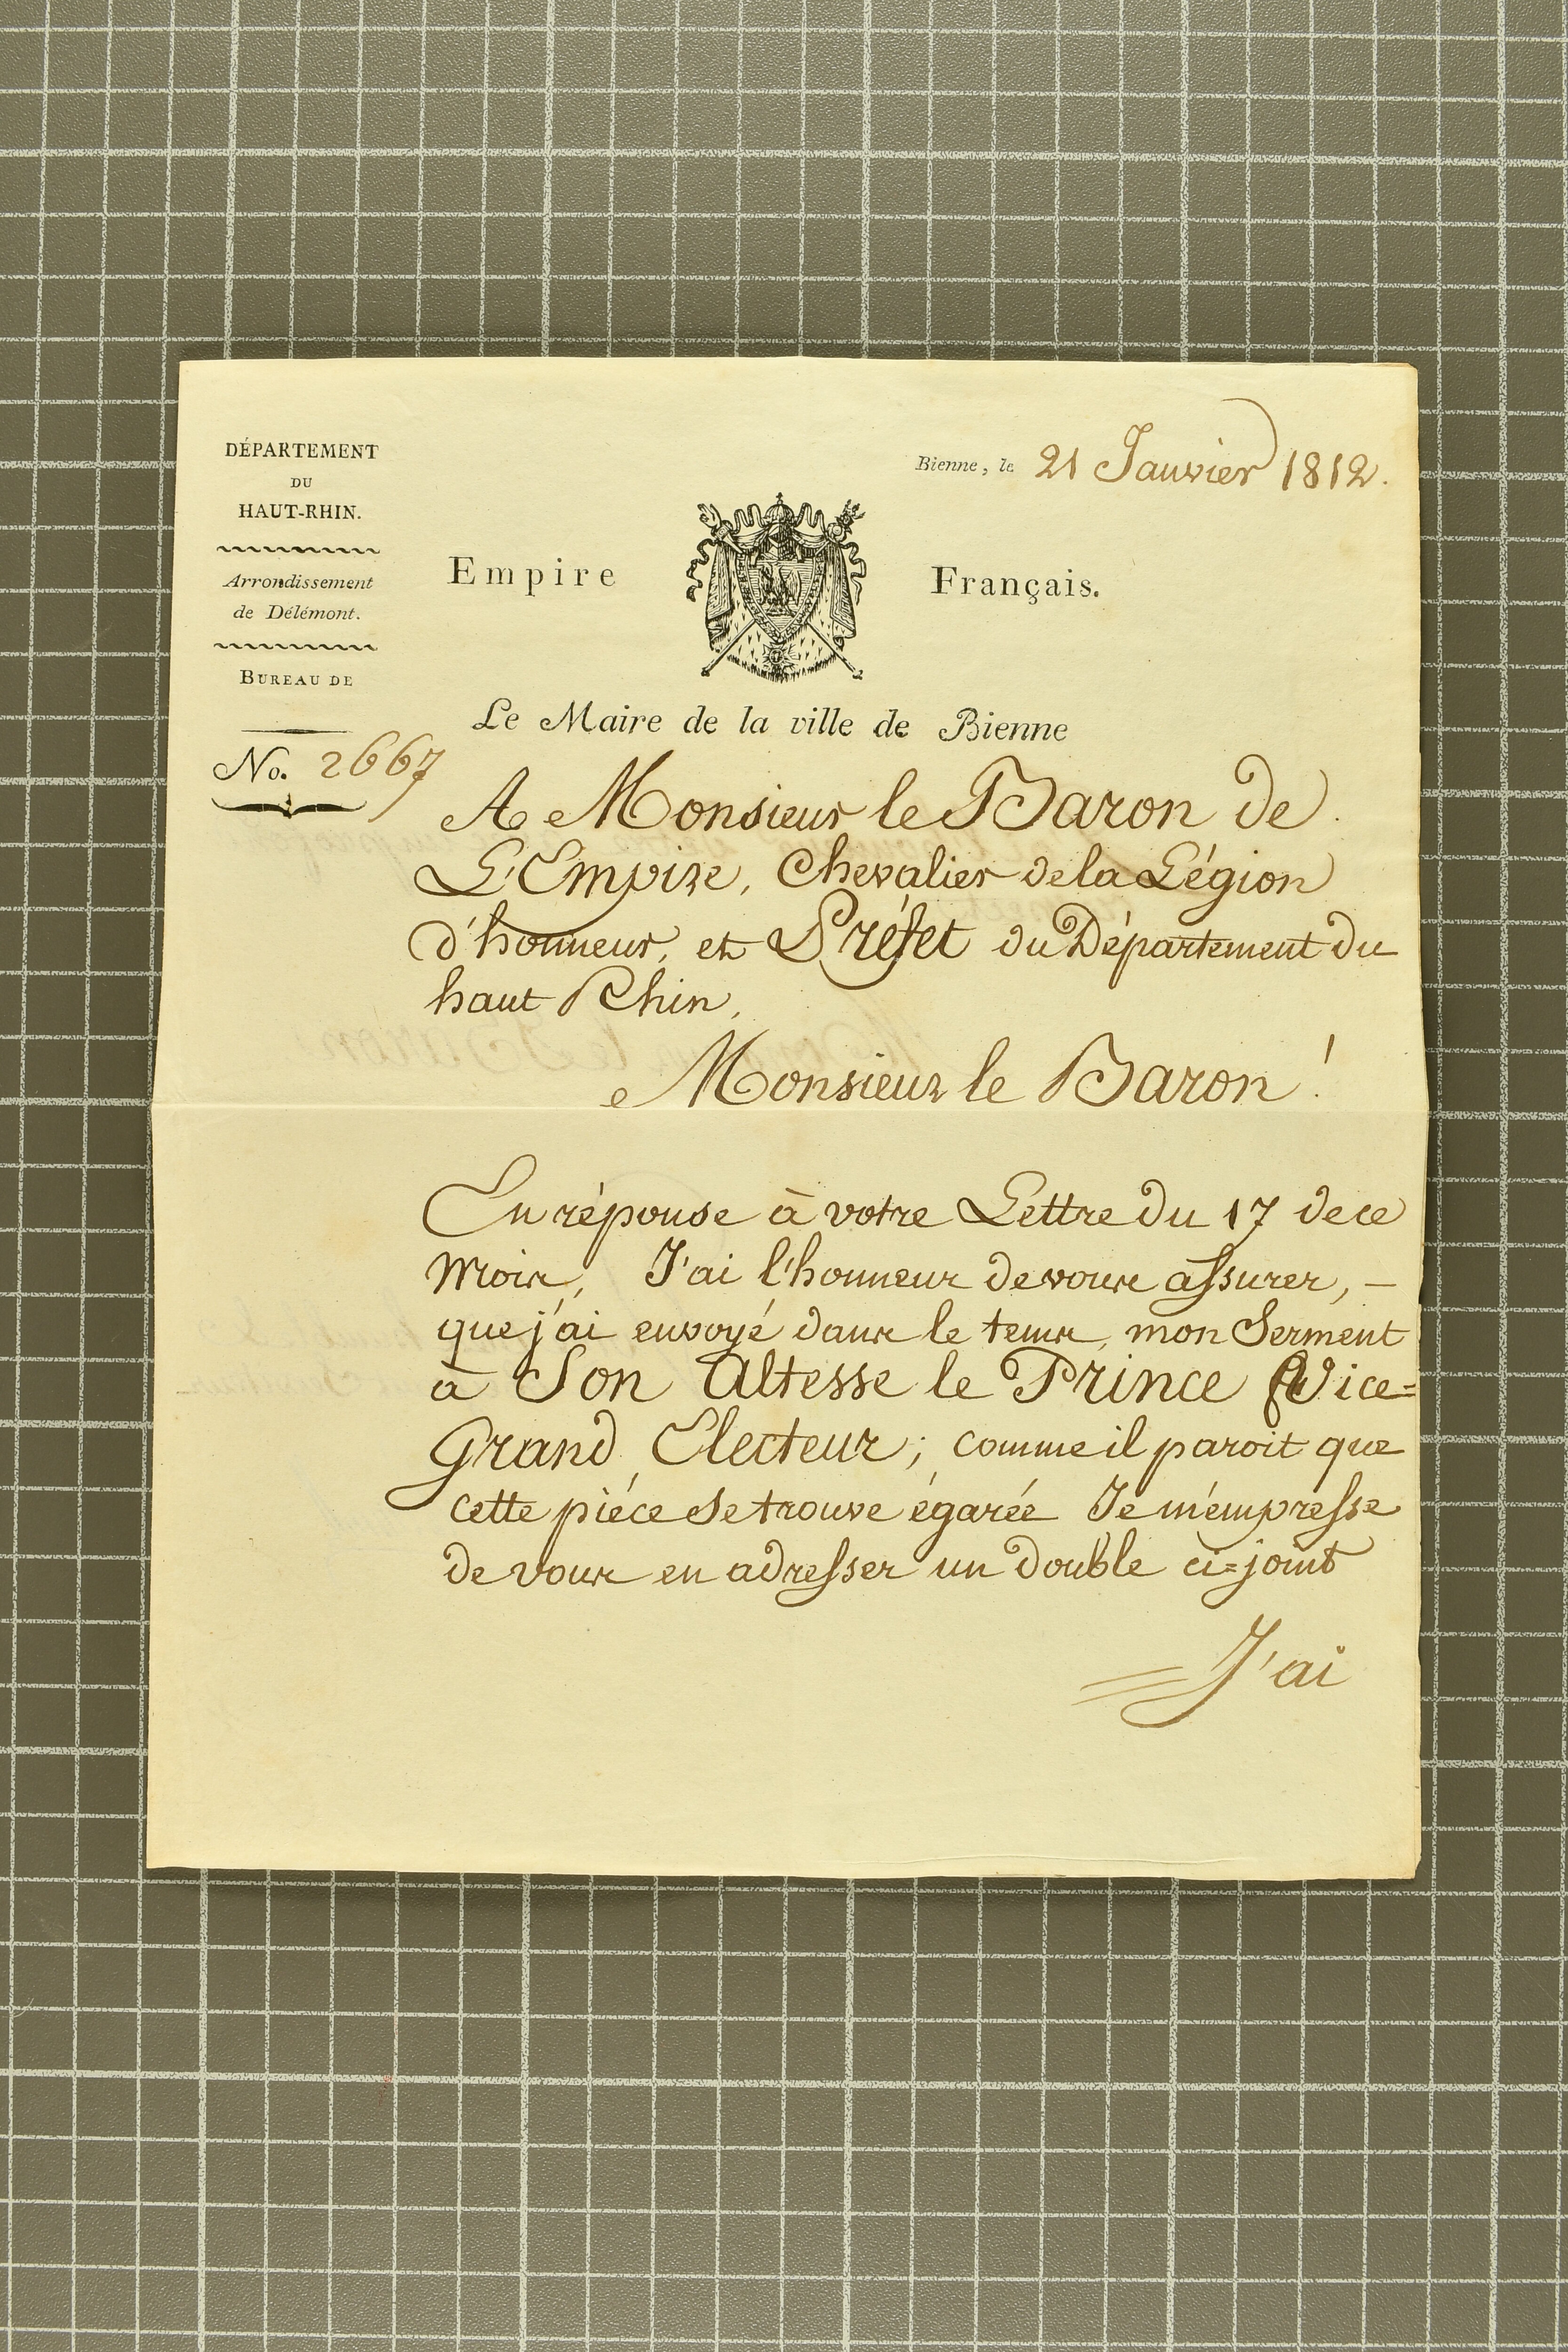 DÉPARTEMENT
DU
HAUT-RHIN.
Arrondissement
de Délémont.
BUREAU DE
No. 2667
Bienne, le 21 Janvier 1812.
Empire Français.
Le Maire de la ville de Bienne
A Monsieur le Baron de
L'Empire, Chevalier de la Légion
d'honneur, et Préfet du Département du
haut Rhin,
Monsieur le Baron!
En réponse à votre Lettre du 17 de ce
mois, J'ai l'honneur de vous assurer, –
que j'ai envoyé dans le tems, mon Serment
à Son Altesse le Prince Vice=
Grand Electeur; comme il paroit que
cette piéce se trouve égarée Je m'empresse
de vous en adresser un double ci=joint
J'ai